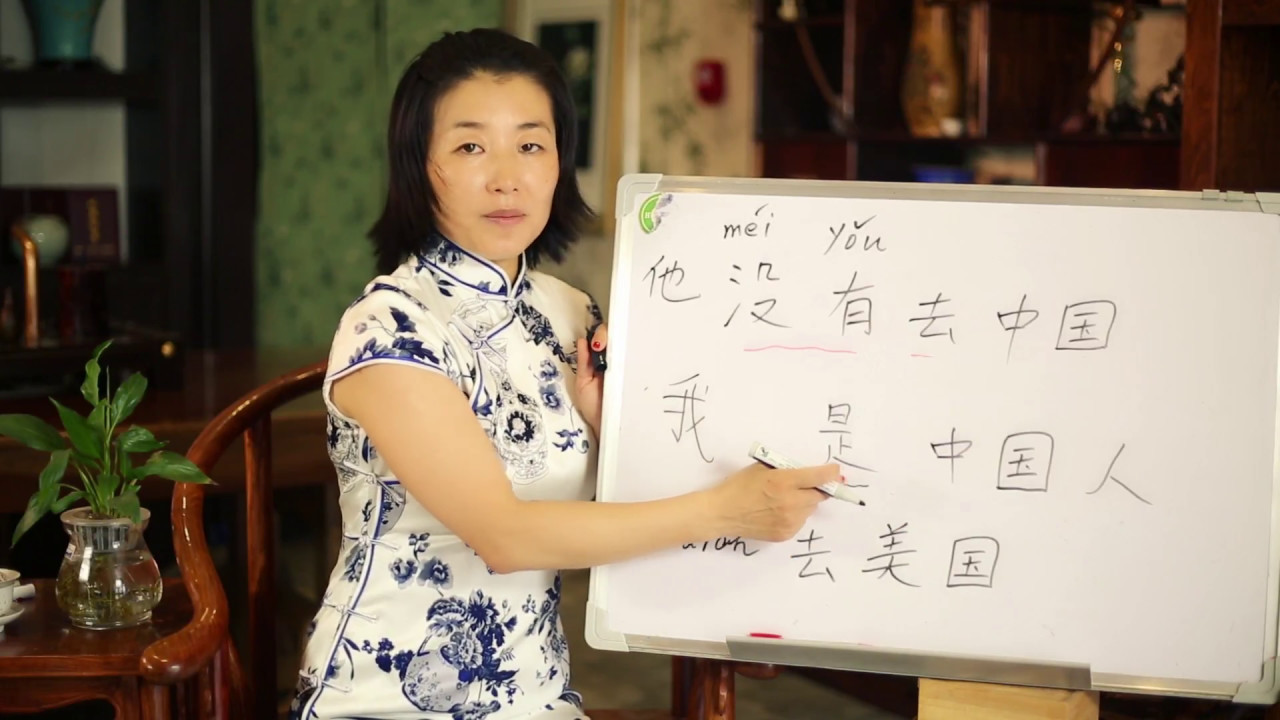 méi yǒu
他 没 有 去 中 国
我 是 中 国 人
去 美 国